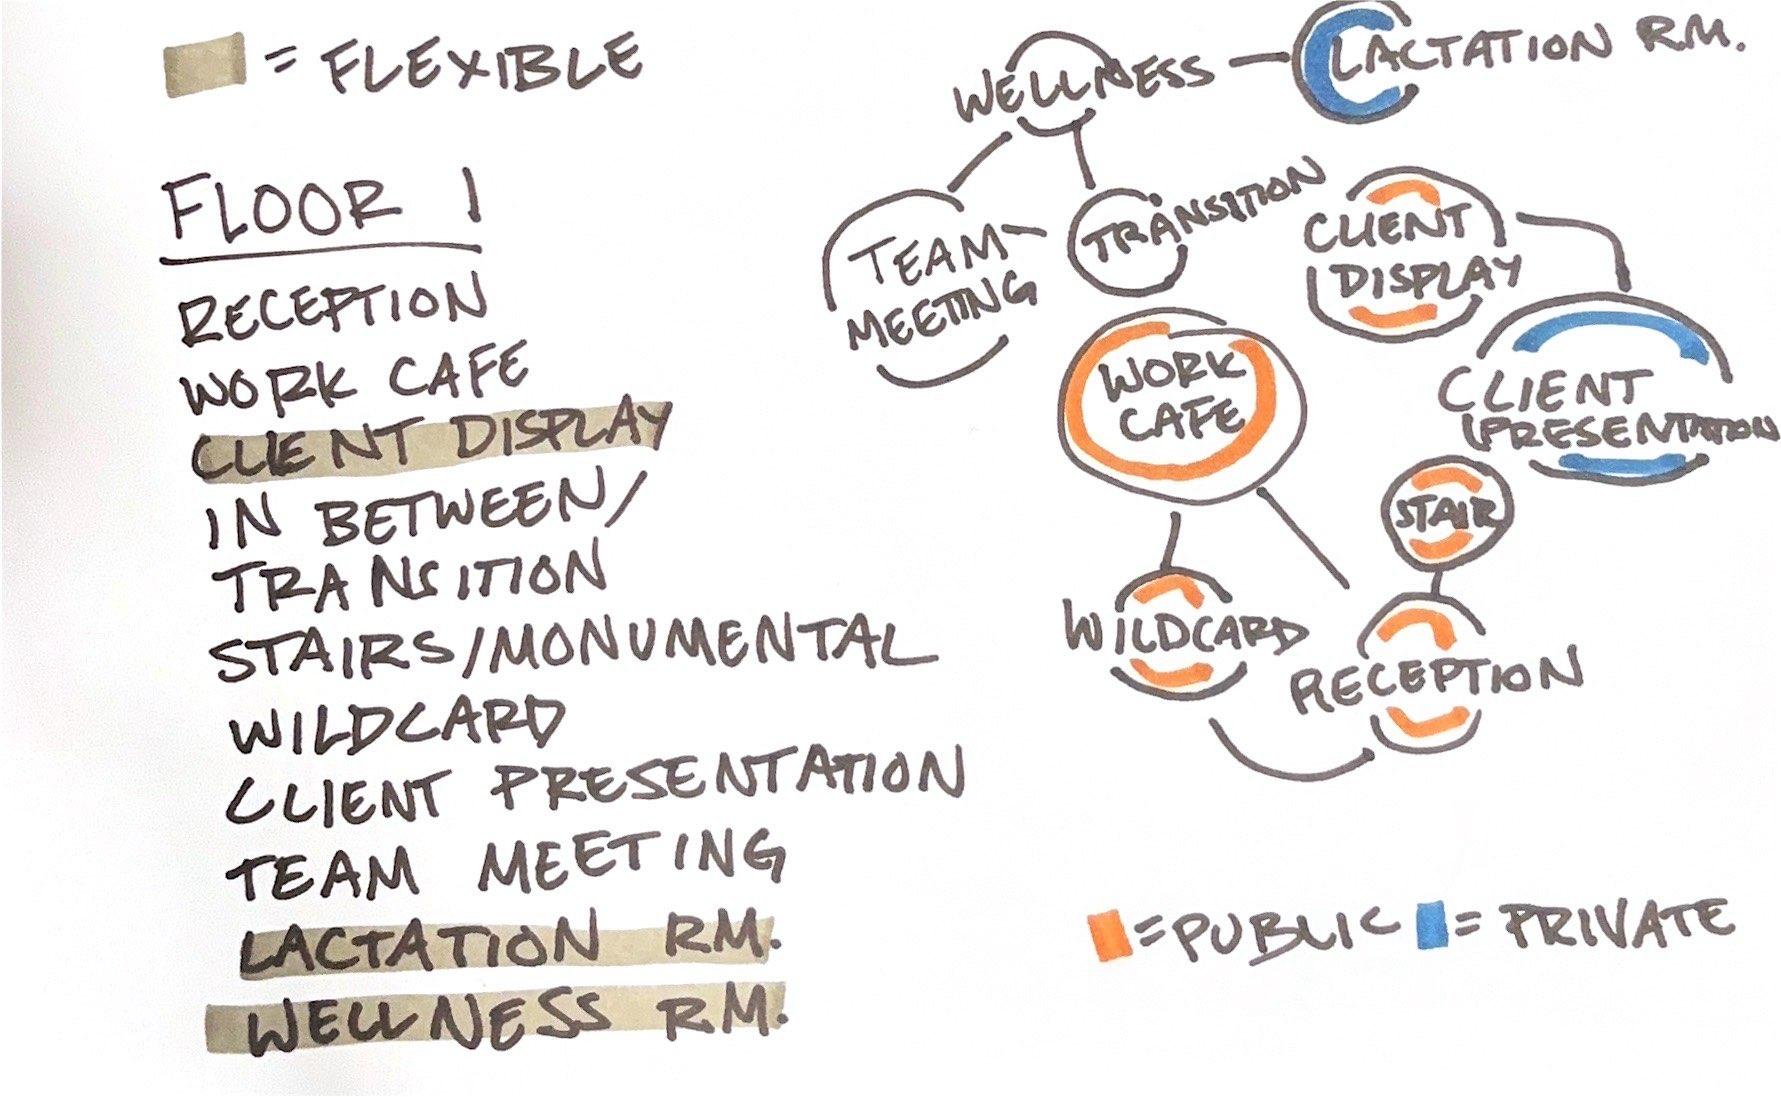 = FLEXIBLE
FLOOR 1
RECEPTION
WORK CAFE
CLIENT DISPLAY
IN BETWEEN/
TRANSITION
STAIRS/MONUMENTAL
WILDCARD
CLIENT PRESENTATION
TEAM MEETING
LACTATION RM.
WELLNESS RM.
WELLNESS
LACTATION RM.
TEAM
MEETING
TRANSITION
CLIENT
DISPLAY
WORK
CAFE
CLIENT
PRESENTATION
STAIR
WILDCARD
RECEPTION
=PUBLIC
= PRIVATE